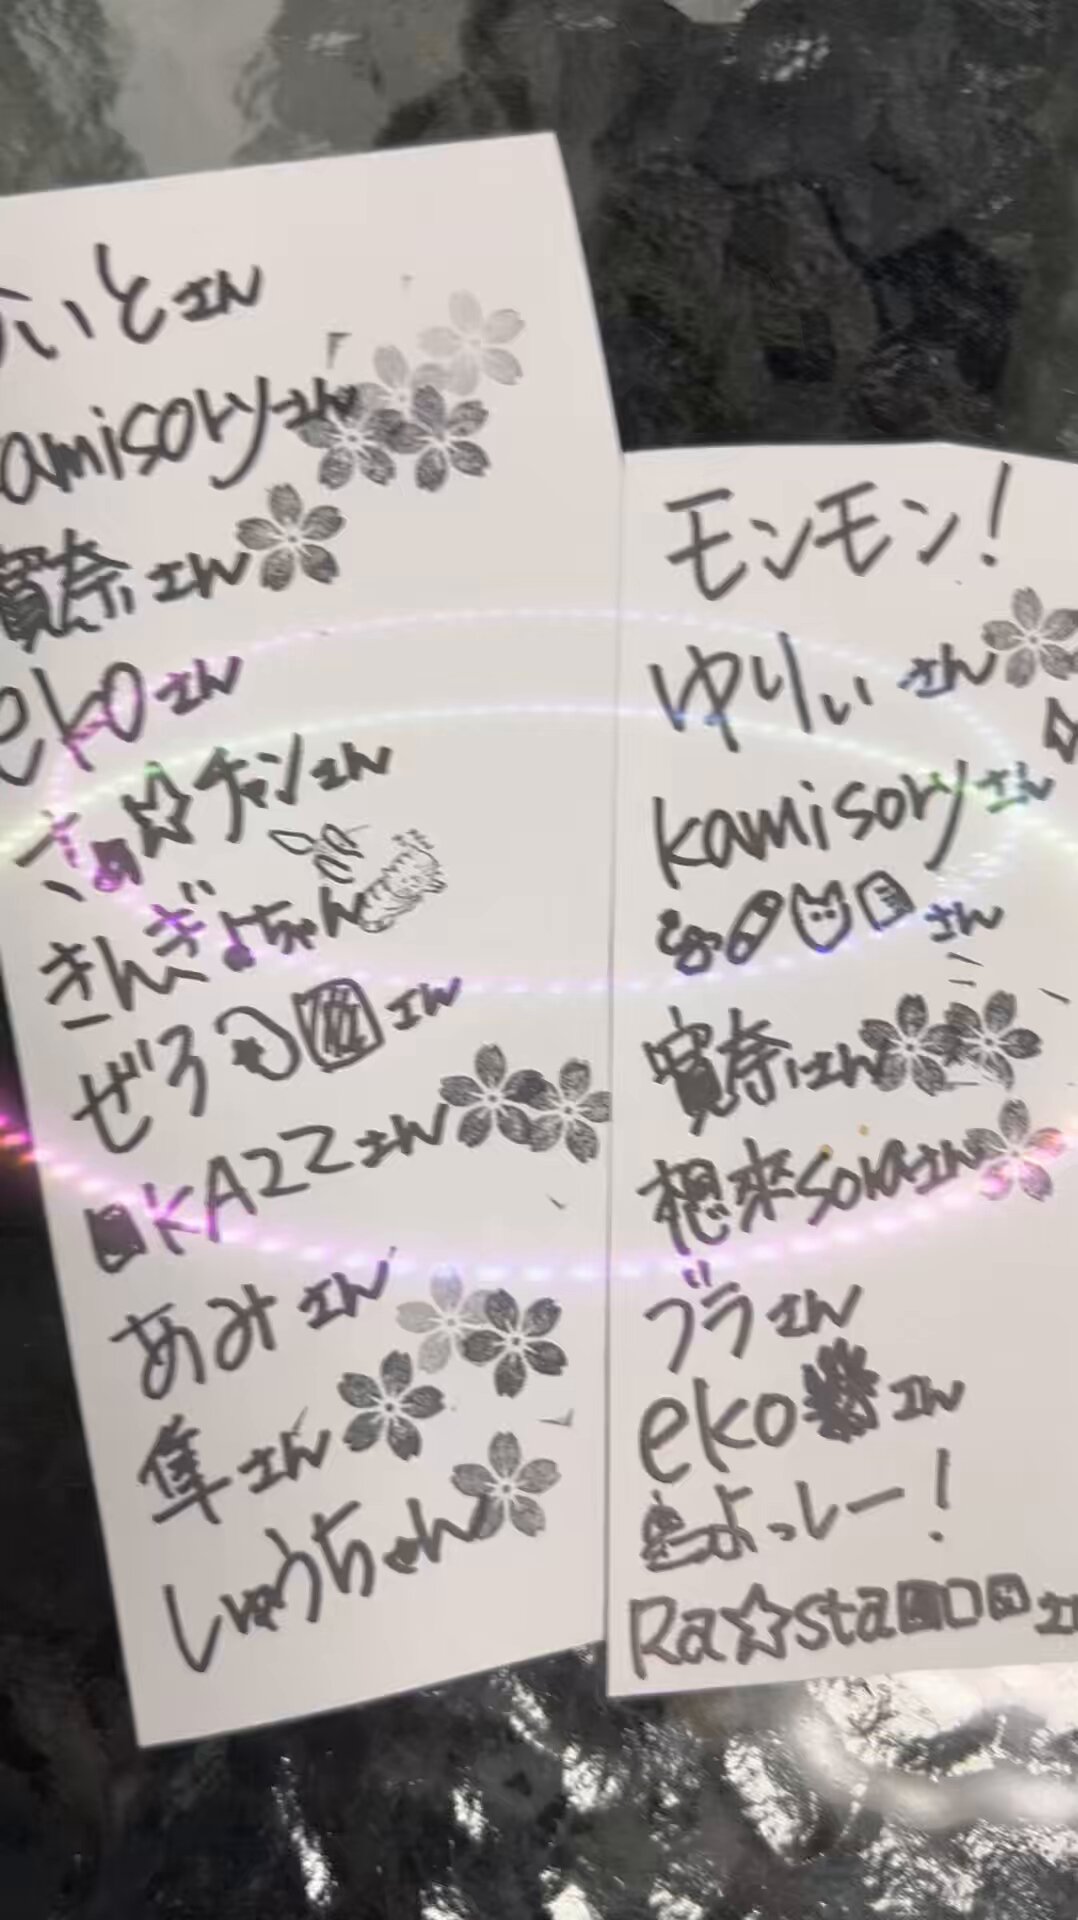 いとさん
amisoryさん
寶奈さん
ekoさん
さぁ☆チャンさん
きんぎょちゃん
ぜろさん
KAZZさん
あみさん
隼さん
しゅうちゃん
モンモン!
ゆりぃさん
kamisoryさん
さん
寶奈さん
想来soraさん
ブラさん
ekoさん
よっしー!
Ra☆staさん